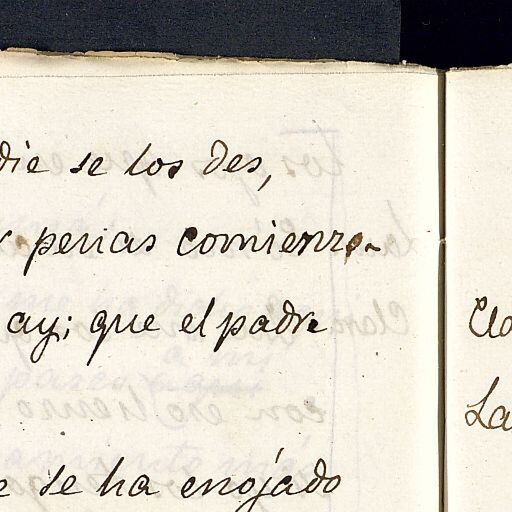 die se los des,
penas comienzo
ay; que el padre
se ha enojado
Cla
La